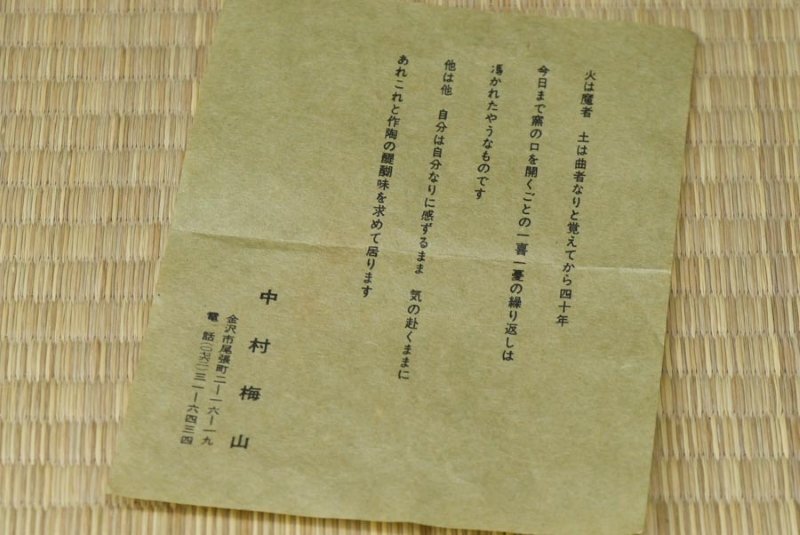 火は魔者　土は曲者なりと覚えてから四十年
今日まで窯の口を開くごとの一喜一憂の繰り返しは
憑かれたやうなものです
他は他　自分は自分なりに感ずるまま　気の赴くままに
あれこれと作陶の醍醐味を求めて居ります
中村梅山
金沢市尾張町二ー一六ー一九
電話(〇七六二)三一ー六四三四